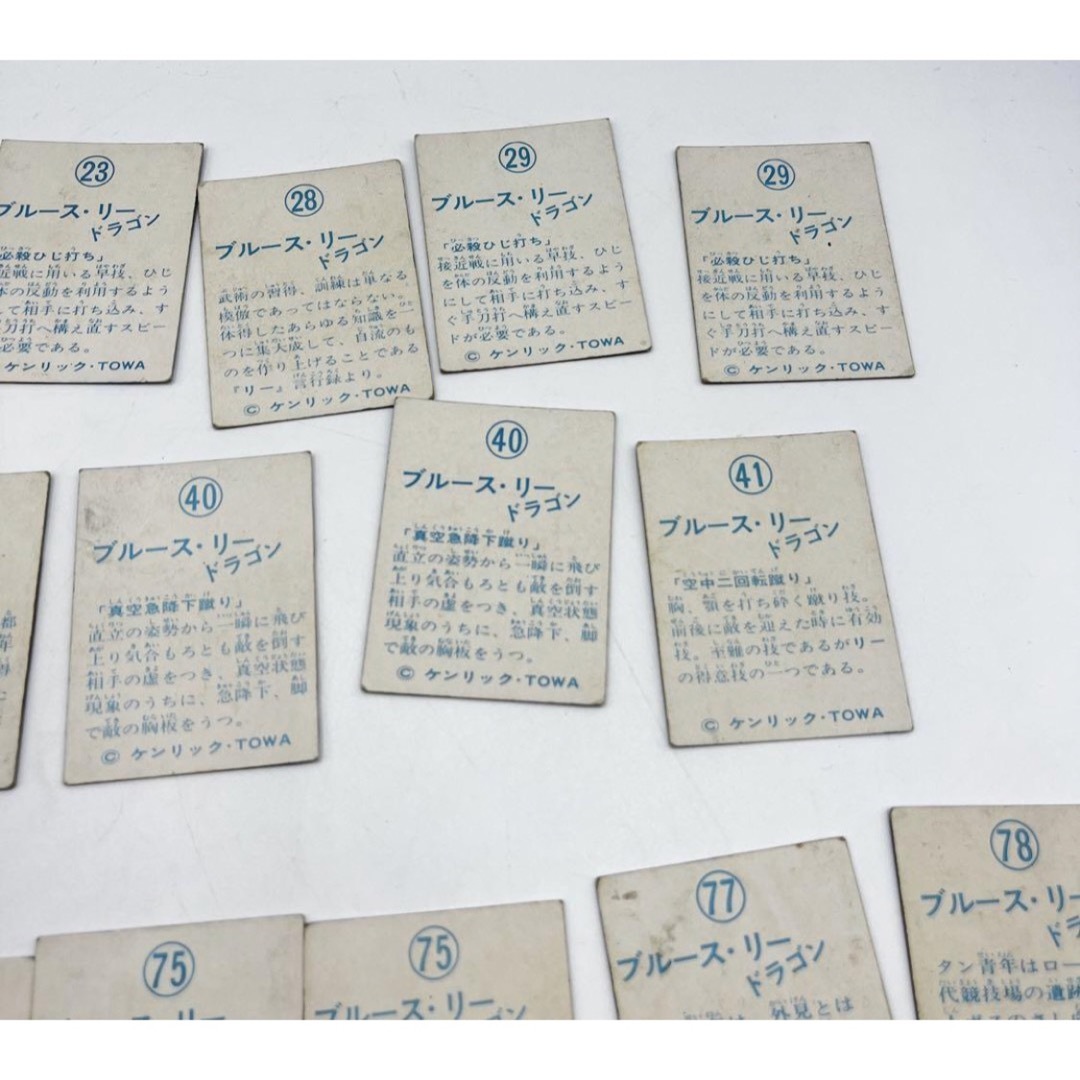 23
ブルース・リー
ドラゴン
必殺ひじ打ち」
接近戦に用いる早技、ひじ
体の反動を利用するよう
して相手に打ち込み、す
手刀打へ構え直すスピー
必要である。
ケンリック・TOWA
28
ブルース・リー
ドラゴン
武術の習得、訓練は単なる
模倣であってはならない。
体得したあらゆる知識を一
つに集大成して、自流のも
のを作り上げることである
『リー』言行録より。
© ケンリック・TOWA
29
ブルース・リー
ドラゴン
「必殺ひじ打ち」
接近戦に用いる早技、ひじ
を体の反動を利用するよう
にして相手に打ち込み、す
ぐ手刀打へ構え直すスピー
ドが必要である。
© ケンリック・TOWA
29
ブルース・リー
ドラゴン
「必殺ひじ打ち」
接近戦に用いる早技、ひじ
を体の反動を利用するよう
にして相手に打ち込み、す
ぐ手刀打へ構え直すスピー
ドが必要である。
© ケンリック・TOWA
都
40
ブルース・リー
ドラゴン
「真空急降下蹴り」
直立の姿勢から一瞬に飛び
上り気合もろとも敵を倒す
相手の虚をつき、真空状態
現象のうちに、急降下、脚
で敵の胸板をうつ。
© ケンリック・TOWA
40
ブルース・リー
ドラゴン
「真空急降下蹴り」
直立の姿勢から一瞬に飛び
上り気合もろとも敵を倒す
相手の虚をつき、真空状態
現象のうちに、急降下、脚
で敵の胸板をうつ。
© ケンリック・TOWA
41
ブルース・リー
ドラゴン
「空中二回転蹴り」
胸、顎を打ち砕く蹴り技。
前後に敵を迎えた時に有効
技。至難の技であるがリー
の得意技の一つである。
© ケンリック・TOWA
75
75
ブルース・リー
77
ブルース・リー
ドラゴン
外見とは
78
ブルース・リ
ドラ
タン青年はロー
代競技場の遺跡